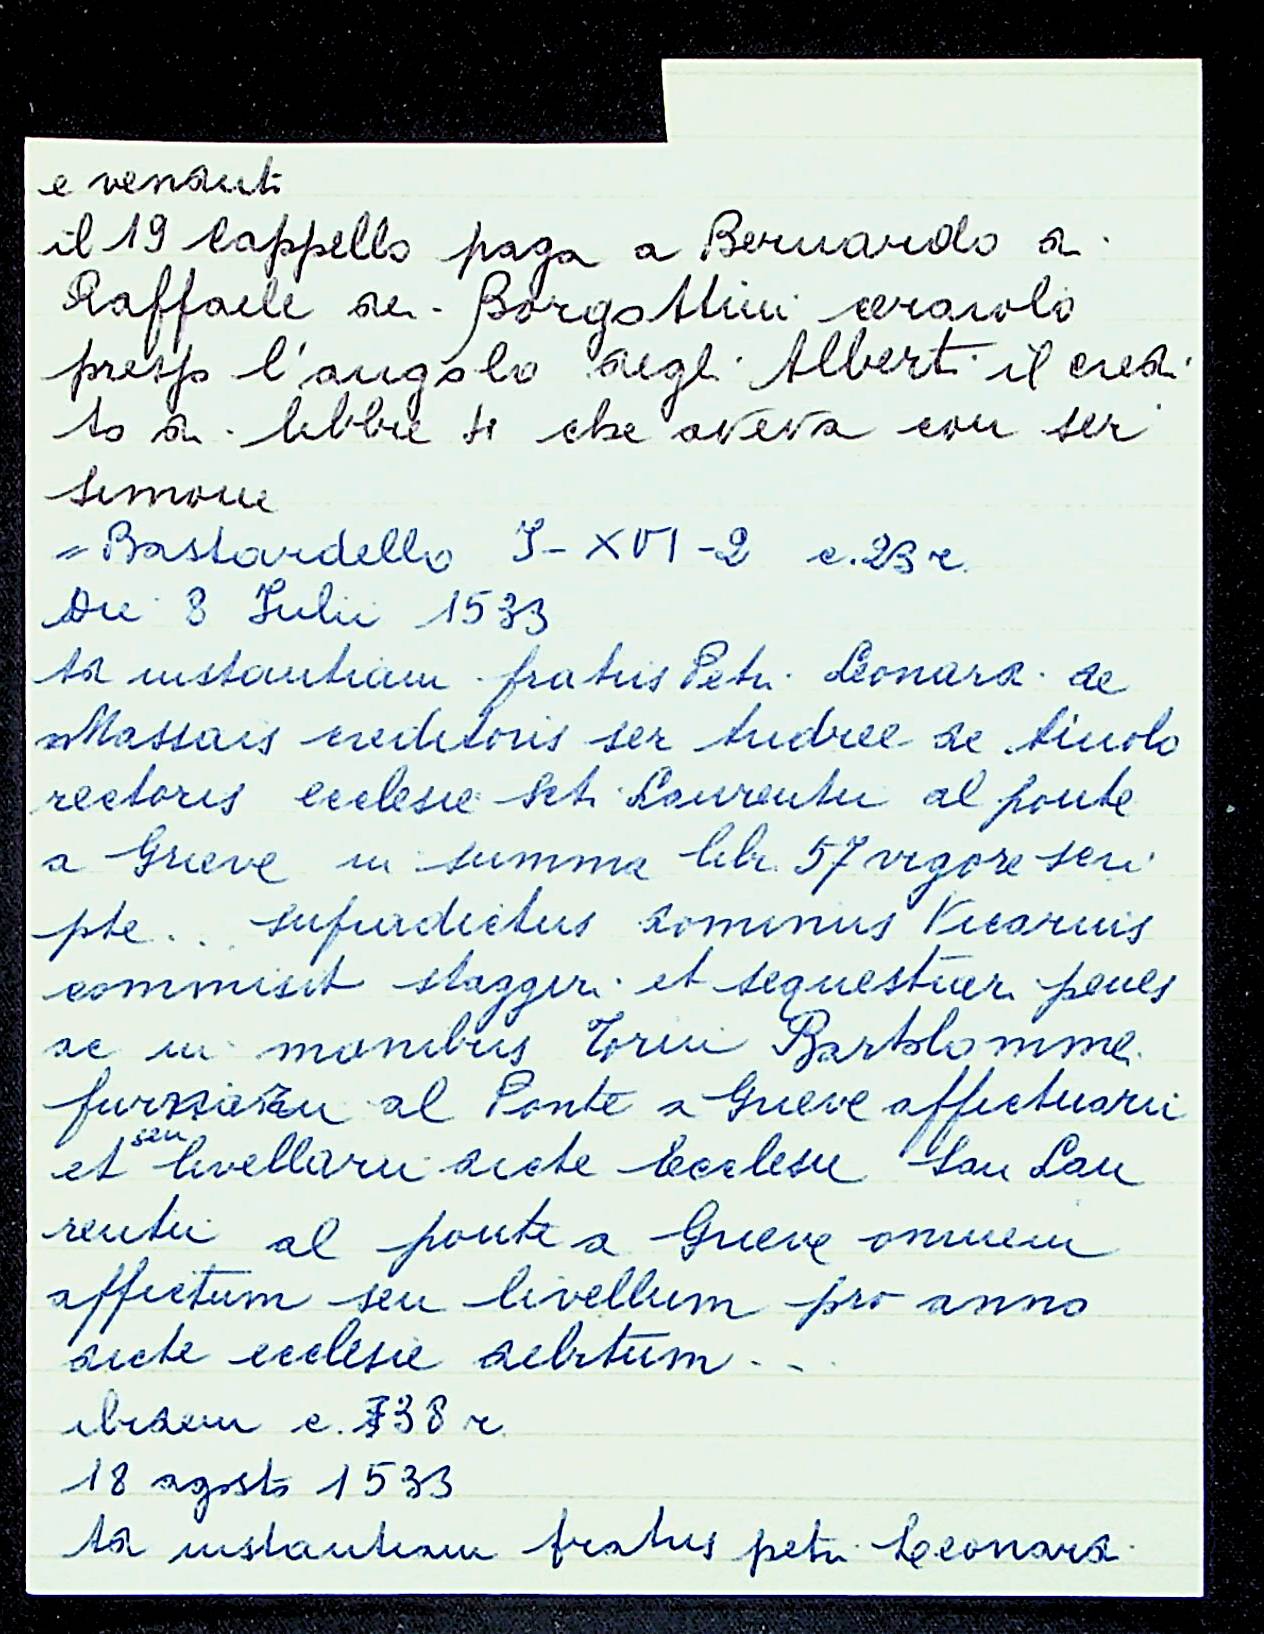 e venduti
il 19 Cappello paga a Bernardo di
Raffaele di Borgattini ceraiolo
presso l'angolo degli Alberti il credi
to di libbre 51 che aveva con ser
Simone
= Bastardello I-XVI-2 c. 23 r.
Die 8 Iulii 1533
Ad instantiam fratris Petri Leonardi de
Massais creditoris ser Andree de
rectoris ecclesie Scti Laurentii al ponte
a Grieve in summa libr. 57 vigore scri
pte... supradictus dominus Vicarius
commisit staggiri et sequestrari penes
ac in manibus Torini Bartolommei
al Ponte a Grieve affictuarii
et seu livellarii dicte Ecclesie San Lau
rentii al ponte a Grieve omnem
affictum seu livellum pro anno
dicte ecclesie debitum...
ibidem c. 38 r.
18 agosto 1533
Ad instantiam fratris petri Leonardi